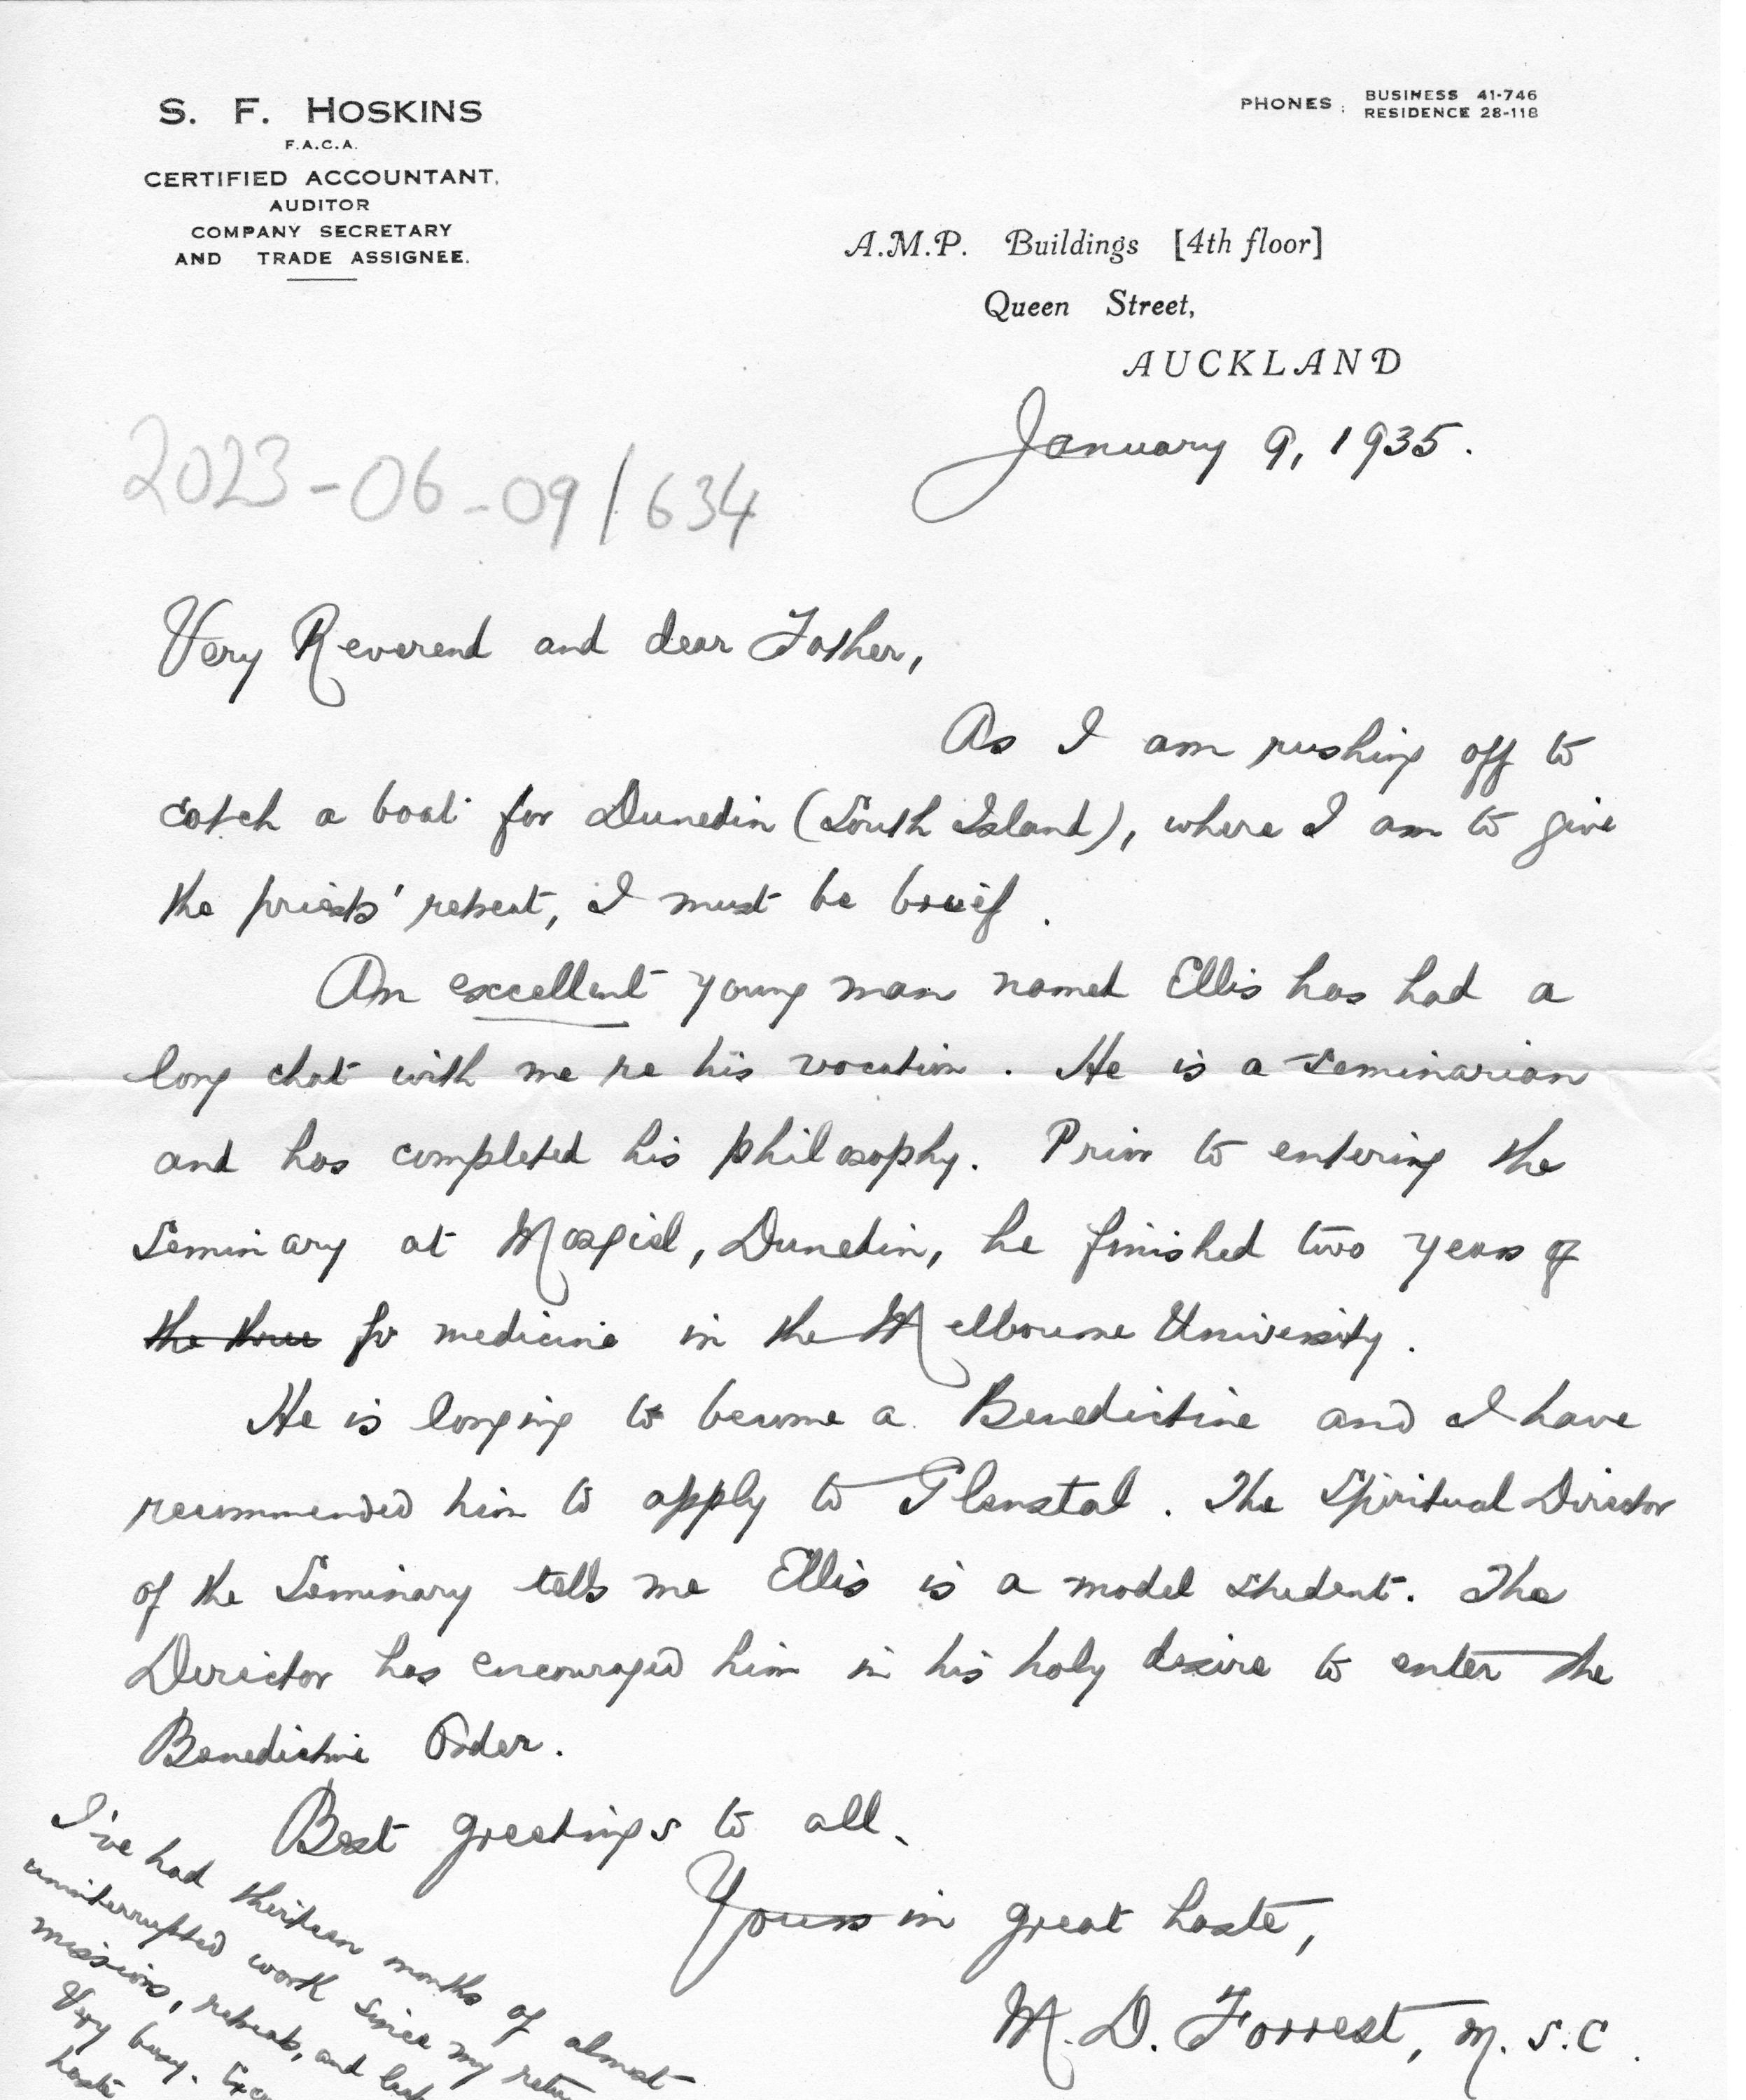 S. F. HOSKINS
F.A.C.A.
CERTIFIED ACCOUNTANT,
AUDITOR
COMPANY SECRETARY
AND TRADE ASSIGNEE.
PHONES: BUSINESS 41-746
RESIDENCE 28-118
A.M.P. Buildings [4th floor]
Queen Street,
AUCKLAND
January 9, 1935.
2023-06-09/634
Very Reverend and dear Father,
As I am rushing off to
catch a boat for Dunedin (South Island), where I am to give
the priests' retreat, I must be brief.
An excellent young man named Ellis has had a
long chat with me re his vocation. He is a seminarian
and has completed his philosophy. Prior to entering the
Seminary at Mosgiel, Dunedin, he finished two years of
the three for medicine in the Melbourne University.
He is longing to become a Benedictine and I have
recommended him to apply to Glenstal. The Spiritual Director
of the Seminary tells me Ellis is a model student. The
Director has encouraged him in his holy desire to enter the
Benedictine Order.
Best greetings to all.
Yours in great haste,
M. D. Forrest, M.S.C.
I've had thirteen months of almost
uninterrupted work since my
missions, retreats, and
Very busy.
haste